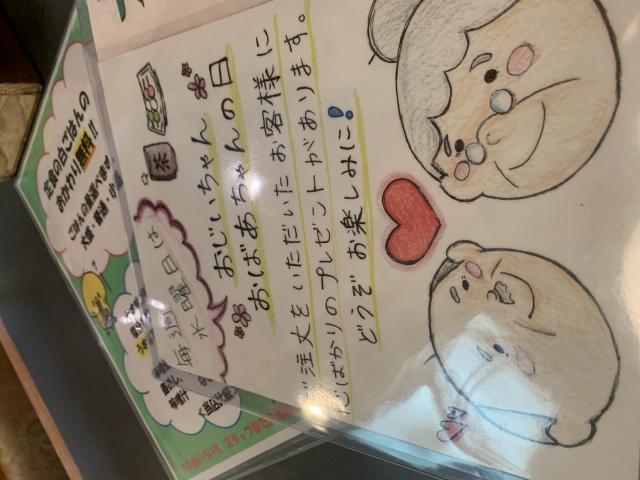 毎週
水曜日は
おじいちゃん
おばあちゃんの日
ご注文をいただいたお客様に
心ばかりのプレゼントがあります。
どうぞお楽しみに!
茶
定食の白ごはんの
おかわり無料!!
ごはんの量選べます
大盛・普通・小